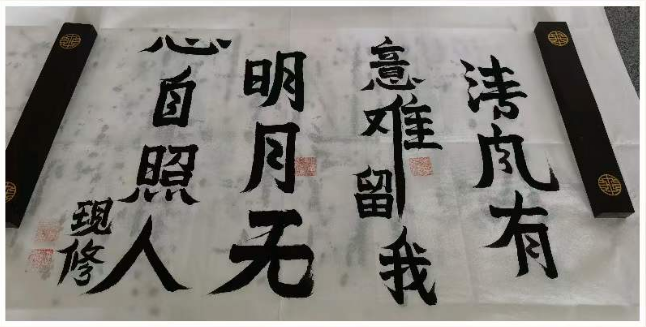 清风有
意难留我
明月无
心自照人
现修